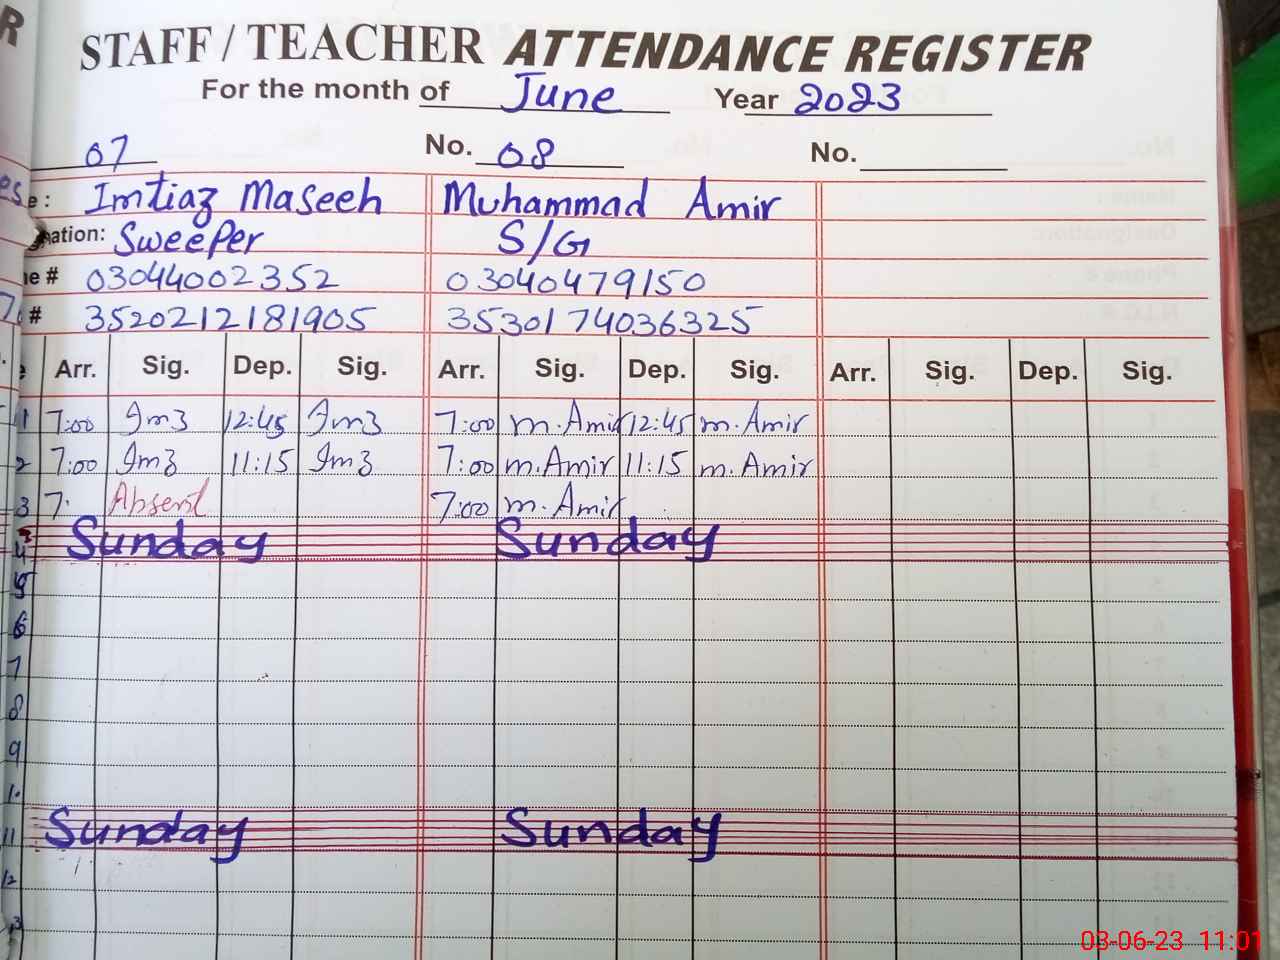 R
STAFF / TEACHER ATTENDANCE REGISTER
For the month of June Year 2023
07 No. 08 No.
e : Imtiaz Maseeh Muhammad Amir
gnation: Sweeper S/G
ne # 03044002352 03040479150
# 3520212181905 3530174036325
Arr. Sig. Dep. Sig. Arr. Sig. Dep. Sig. Arr. Sig. Dep. Sig.
1 7:00 Imz 12:45 Imz 7:00 m.Amir 12:45 m.Amir
2 7:00 Imz 11:15 Imz 7:00 m.Amir 11:15 m.Amir
3 7. Absent 7:00 m.Amir
4 Sunday Sunday
5
6
7
8
9
10
11 Sunday Sunday
12
13
03-06-23 11:01